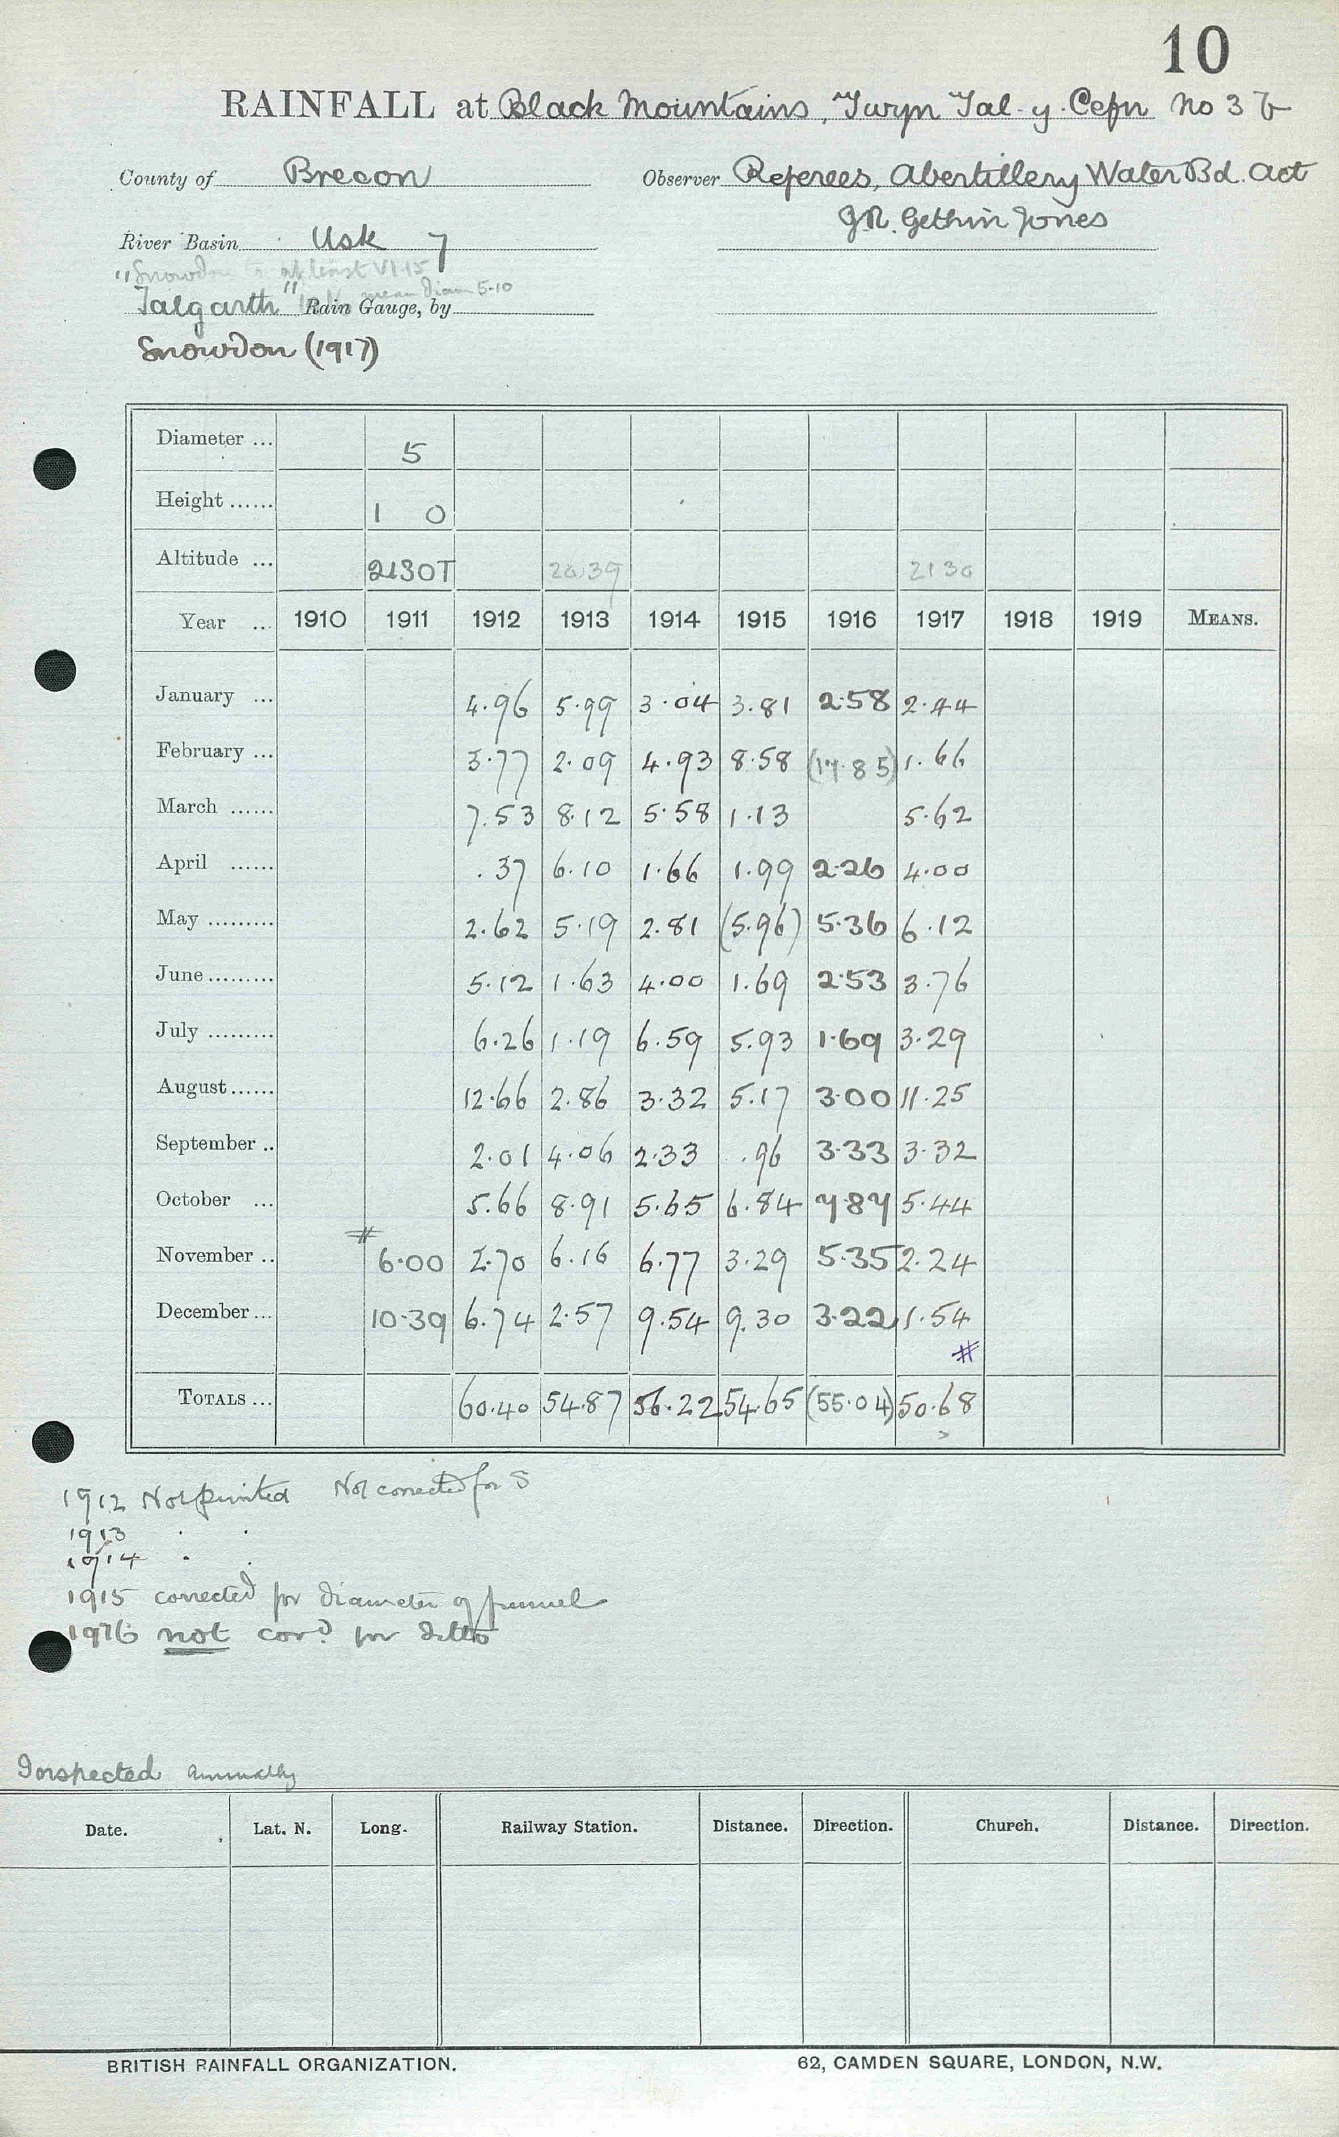 10
RAINFALL at Black Mountains, Twyn Tal-y-Cefn No 3 b
County of Brecon Observer Referees, Abertillery Water Bd. Act
J.R. Gethin Jones
River Basin Usk 7
"Snowdon at least VI.15
mean diam 5.10
Talgarth" Rain Gauge, by
Snowdon (1917)
Diameter ... 5
Height ...... 1 0
Altitude ... 2130T 2039 2130
Year ... 1910 1911 1912 1913 1914 1915 1916 1917 1918 1919 MEANS.
January ... 4.96 5.99 3.04 3.81 2.58 2.44
February ... 3.77 2.09 4.93 8.58 (17.85) 1.66
March ...... 7.53 8.12 5.58 1.13 5.62
April ...... .37 6.10 1.66 1.99 2.26 4.00
May ......... 2.62 5.19 2.81 (5.96) 5.36 6.12
June ......... 5.12 1.63 4.00 1.69 2.53 3.76
July ......... 6.26 1.19 6.59 5.93 1.69 3.29
August ...... 12.66 2.86 3.32 5.17 3.00 11.25
September .. 2.01 4.06 2.33 .96 3.33 3.32
October ... 5.66 8.91 5.65 6.84 7.87 5.44
November .. # 6.00 2.70 6.16 6.77 3.29 5.35 2.24
December ... 10.39 6.74 2.57 9.54 9.30 3.22 1.54
#
TOTALS ... 60.40 54.87 56.22 54.65 (55.04) 50.68
1912 Not printed Not corrected for S
1913 . .
1914 . .
1915 corrected for diameter of funnel
1916 not cord for ditto
Inspected annually
Date. Lat. N. Long. Railway Station. Distance. Direction. Church. Distance. Direction.
BRITISH RAINFALL ORGANIZATION. 62, CAMDEN SQUARE, LONDON, N.W.